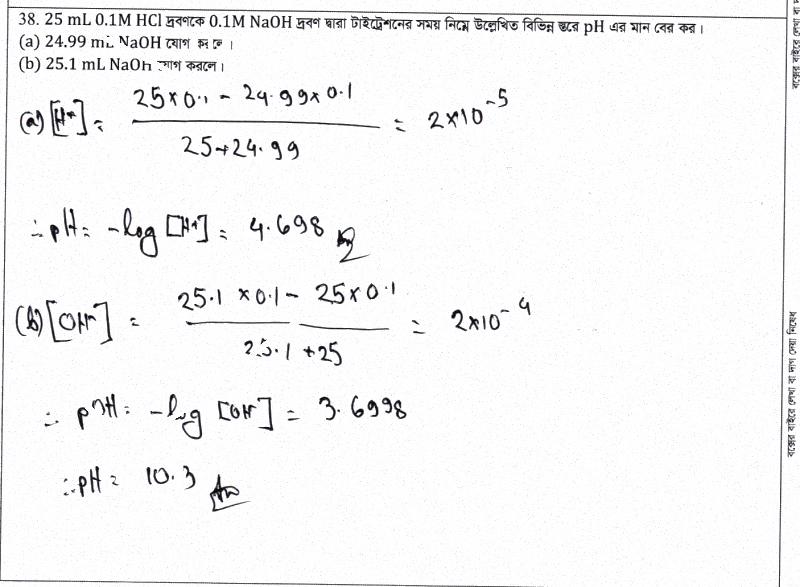 38. 25 mL 0.1M HCl দ্রবণকে 0.1M NaOH দ্রবণ দ্বারা টাইট্রেশনের সময় নিম্নে উল্লেখিত বিভিন্ন স্তরে pH এর মান বের কর।
(a) 24.99 mL NaOH যোগ করলে।
(b) 25.1 mL NaOH যোগ করলে।
(a) [H⁺] = (25×0.1 - 24.99×0.1) / (25+24.99) = 2×10⁻⁵
∴ pH = -log [H⁺] = 4.698
(b) [OH⁻] = (25.1×0.1 - 25×0.1) / (25.1+25) = 2×10⁻⁴
∴ pOH = -log [OH⁻] = 3.6998
∴ pH = 10.3 Ans
বক্সের বাইরে লেখা বা দাগ দেয়া নিষেধ